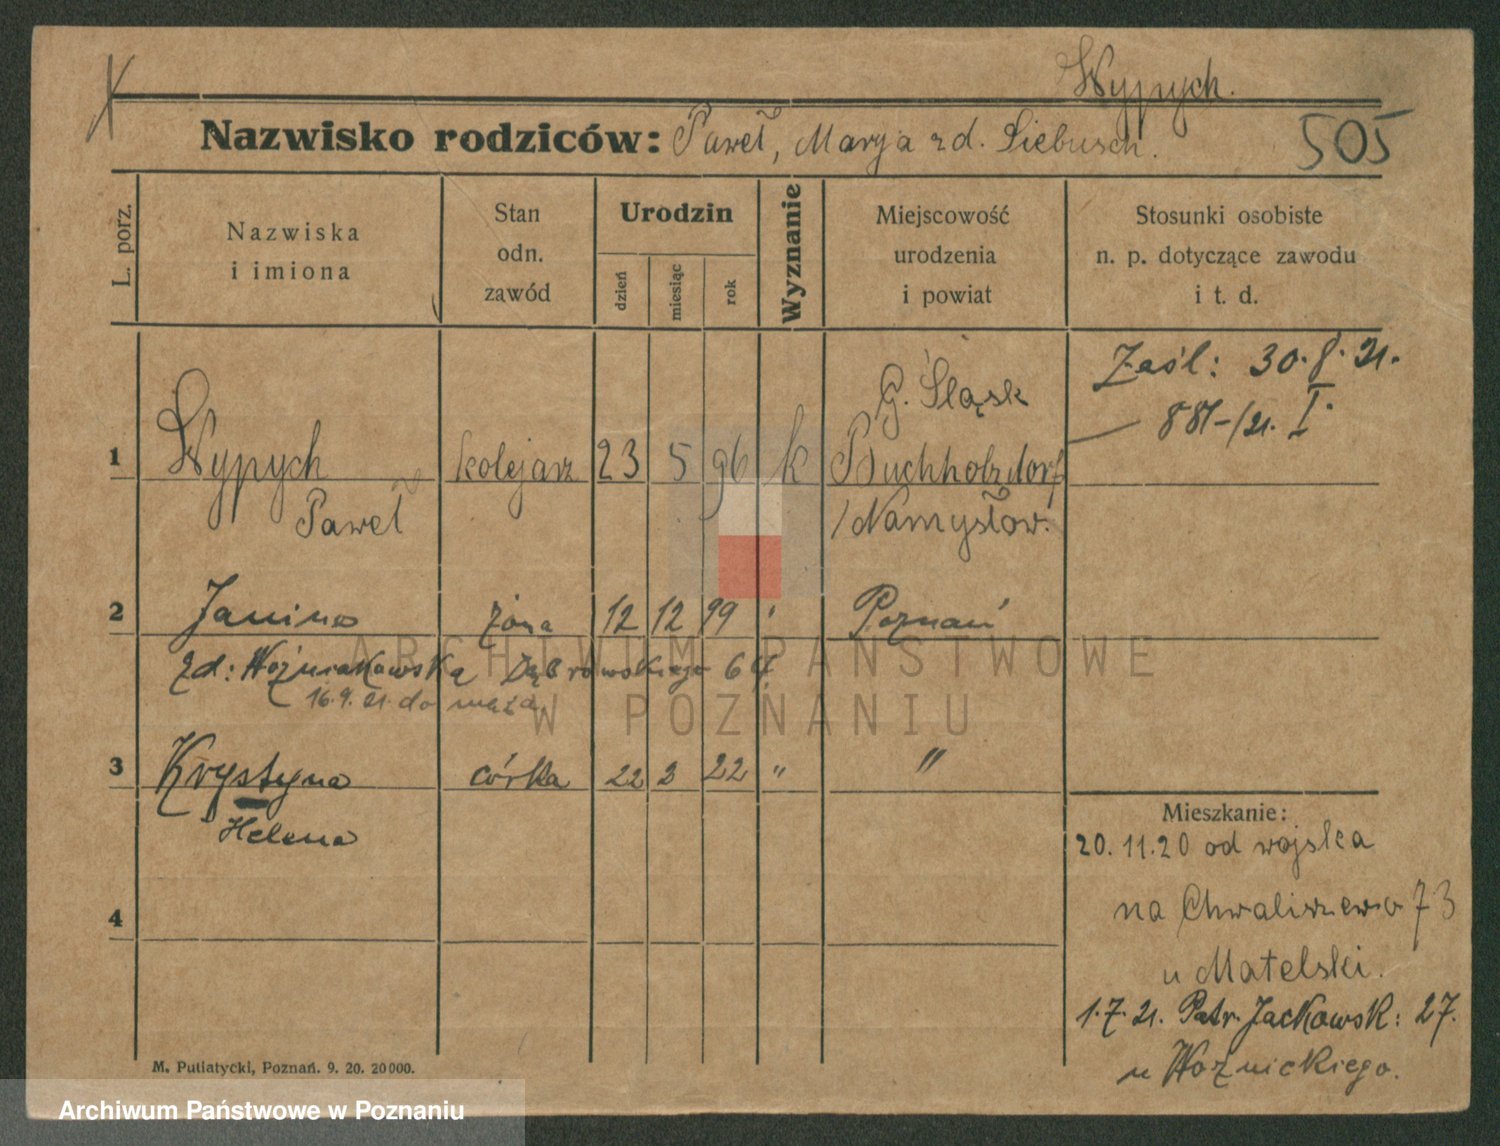 Wypych.
Nazwisko rodziców: Paweł, Marya zd. Siebusch.
505
L. porz.
Nazwiska
i imiona
Stan
odn.
zawód
Urodzin
dzień
miesiąc
rok
Wyznanie
Miejscowość
urodzenia
i powiat
Stosunki osobiste
n. p. dotyczące zawodu
i t. d.
Zaśl: 30.8.21.
881-/21. I.
G. Śląsk
1 Wypych kolejarz 23 5 96 k Buchholzdorf
Paweł /Namysłow.
2 Janina żona 12 12 99 " Poznań
zd: Woźniakowska Dąbrowskiego 67.
16.9.21. do męża.
3 Krystyna córka 22 2 22 " "
Helena
4
Mieszkanie:
20.11.20 od wojska
na Chwaliszewo 73
u Matelski.
1.7.21. Patr. Jackowsk: 27.
u Woźnickiego.
M. Putiatycki, Poznań. 9. 20. 20000.
ARCHIWUM PAŃSTWOWE
W POZNANIU
Archiwum Państwowe w Poznaniu